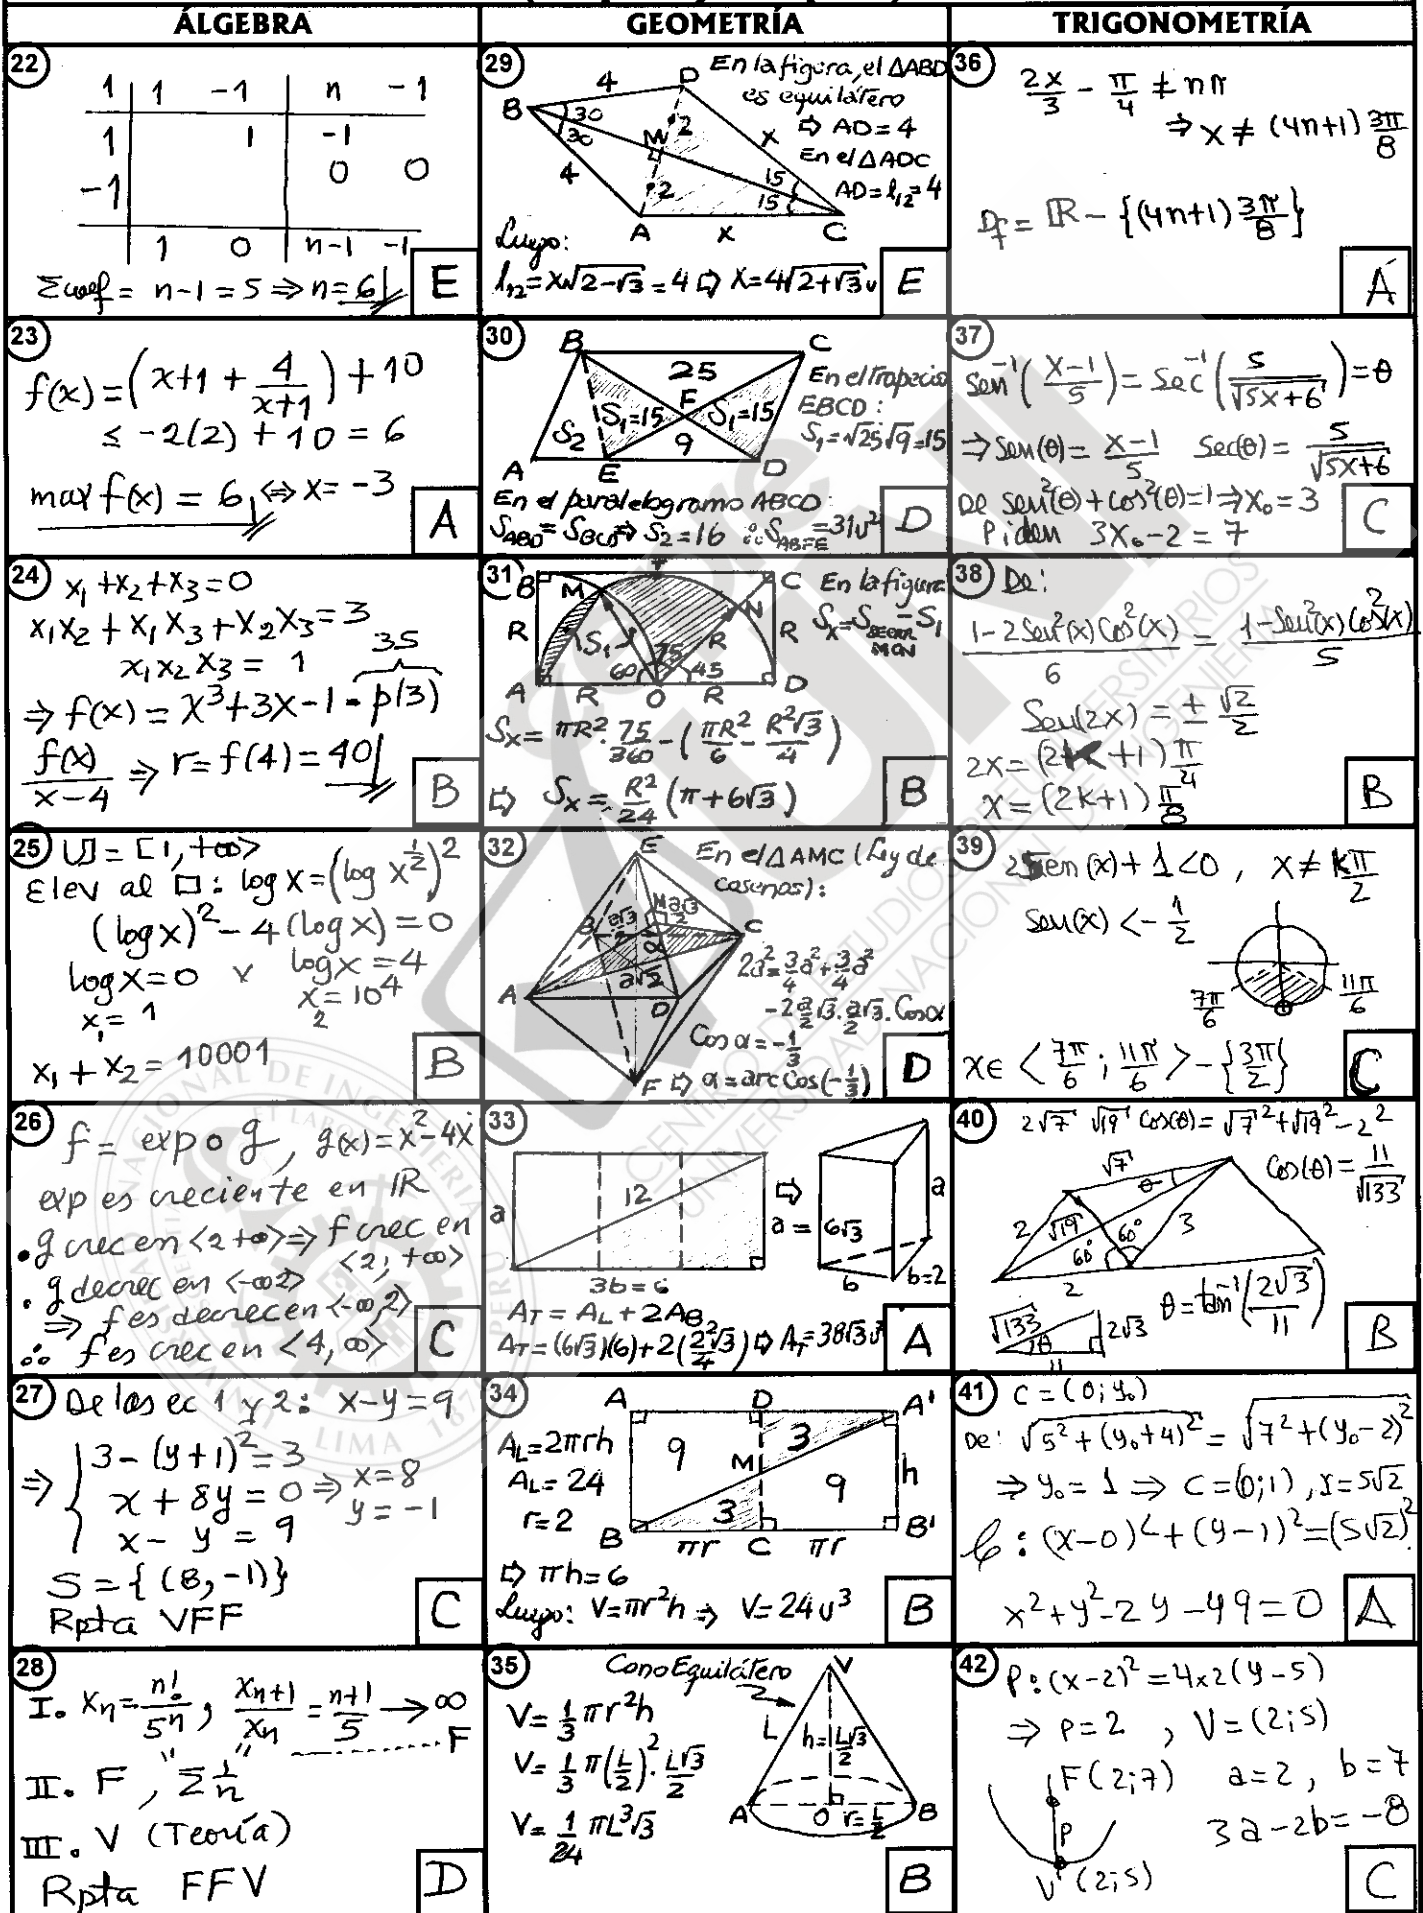 ÁLGEBRA
22
1 | 1 -1 | n -1
1 | 1 | -1
-1 | | 0 0
1 0 | n-1 -1
Σcoef = n-1 = 5 ⇒ n = 6
E
23
f(x) = (x+1 + 4/(x+1)) + 10
≤ -2(2) + 10 = 6
max f(x) = 6 ⇔ x = -3
A
24
x₁ + x₂ + x₃ = 0
x₁x₂ + x₁x₃ + x₂x₃ = 3
x₁x₂x₃ = 1
35
⇒ f(x) = x³ + 3x - 1 - p(3)
f(x)/(x-4) ⇒ r = f(4) = 40
B
25
U = [1, +∞>
Elev al □: log x = (log x^(1/2))²
(log x)² - 4(log x) = 0
log x = 0 v log x = 4
x₁ = 1 x₂ = 10⁴
x₁ + x₂ = 10001
B
26
f = exp o g, g(x) = x² - 4x
exp es creciente en IR
• g crec en <2 +∞> ⇒ f crec en <2; +∞>
• g decrec en <-∞ 2>
⇒ f es decrec en <-∞, 2>
∴ f es crec en <4, ∞>
C
27
De las ec 1 y 2: x-y = 9
⇒ { 3 - (y+1)² = 3
x + 8y = 0 ⇒ x = 8
x - y = 9 y = -1
S = {(8, -1)}
Rpta VFF
C
28
I. xn = n!/5ⁿ, xn+1/xn = (n+1)/5 → ∞
F
II. F, "Σ 1/n"
III. V (Teoría)
Rpta FFV
D
GEOMETRÍA
29
En la figura, el ΔABD
es equilátero
⇨ AD = 4
En el ΔADC
AD = l₁₂ = 4
B 4 D 30 30 M 2 2 x 15 15 4 A x C
Luego:
l₁₂ = x√(2-√3) = 4 ⇨ x = 4√(2+√3) u
E
30
B C 25 F S₁=15 S₁=15 S₂ 9 A E D
En el trapecio
EBCD:
S₁ = √25 √9 = 15
En el paralelogramo ABCD:
S ABD = S BCD ⇒ S₂ = 16 ∴ S ABFE = 31u²
D
31
B M C N R S₁ R R 75 60 45 A R O R D
En la figura
Sx = S SECTOR MON - S₁
Sx = πR²·75/360 - (πR²/6 - R²√3/4)
⇨ Sx = R²/24 (π + 6√3)
B
32
E B M C A D F a√3/2 a√3/2 α a√2
En el ΔAMC (Ley de
cosenos):
2a² = 3/4 a² + 3/4 a²
-2 a/2 √3 · a/2 √3 · Cos α
Cos α = -1/3
⇨ α = arc Cos(-1/3)
D
33
a 12 3b = 6 ⇨ a = 6√3 a 6 b=2
A_T = A_L + 2A_B
A_T = (6√3)(6) + 2(2²√3/4) ⇨ A_T = 38√3 u²
A
34
A D A' 9 3 M 3 9 h B πr C πr B'
A_L = 2πrh
A_L = 24
r = 2
⇨ πh = 6
Luego: V = πr²h ⇒ V = 24u³
B
35
Cono Equilátero
V = 1/3 πr²h
V = 1/3 π(L/2)²·L√3/2
V = 1/24 πL³√3
V L h = L√3/2 A O r = L/2 B
B
TRIGONOMETRÍA
36
2x/3 - π/4 ≠ nπ
⇒ x ≠ (4n+1) 3π/8
Df = IR - {(4n+1) 3π/8}
A
37
Sen⁻¹((x-1)/5) = Sec⁻¹(5/√(5x+6)) = θ
⇒ Sen(θ) = (x-1)/5 Sec(θ) = 5/√(5x+6)
De sen²(θ) + cos²(θ) = 1 ⇒ x₀ = 3
Piden 3x₀ - 2 = 7
C
38
De:
(1 - 2Sen²(x)Cos²(x))/6 = (1 - Sen²(x)Cos²(x))/5
Sen(2x) = ± √2/2
2x = (2k+1) π/4
x = (2k+1) π/8
B
39
2Sen(x) + 1 < 0, x ≠ kπ/2
sen(x) < -1/2
7π/6 11π/6
x∈ <7π/6; 11π/6> - {3π/2}
C
40
2√7 √19 cos(θ) = √7² + √19² - 2²
cos(θ) = 11/√133
√7 θ 2 √19 60° 60° 3 2
√133 θ 2√3 11
θ = tan⁻¹(2√3/11)
B
41
C = (0; y₀)
De: √(5² + (y₀+4)²) = √(7² + (y₀-2)²)
⇒ y₀ = 1 ⇒ C = (0;1), r = 5√2
C: (x-0)² + (y-1)² = (5√2)²
x² + y² - 2y - 49 = 0
A
42
P: (x-2)² = 4x2(y-5)
⇒ p = 2, V = (2;5)
F(2;7) a = 2, b = 7
P 3a - 2b = -8
V (2;5)
C
CENTRO DE ESTUDIOS PREUNIVERSITARIOS
UNIVERSIDAD NACIONAL DE INGENIERIA